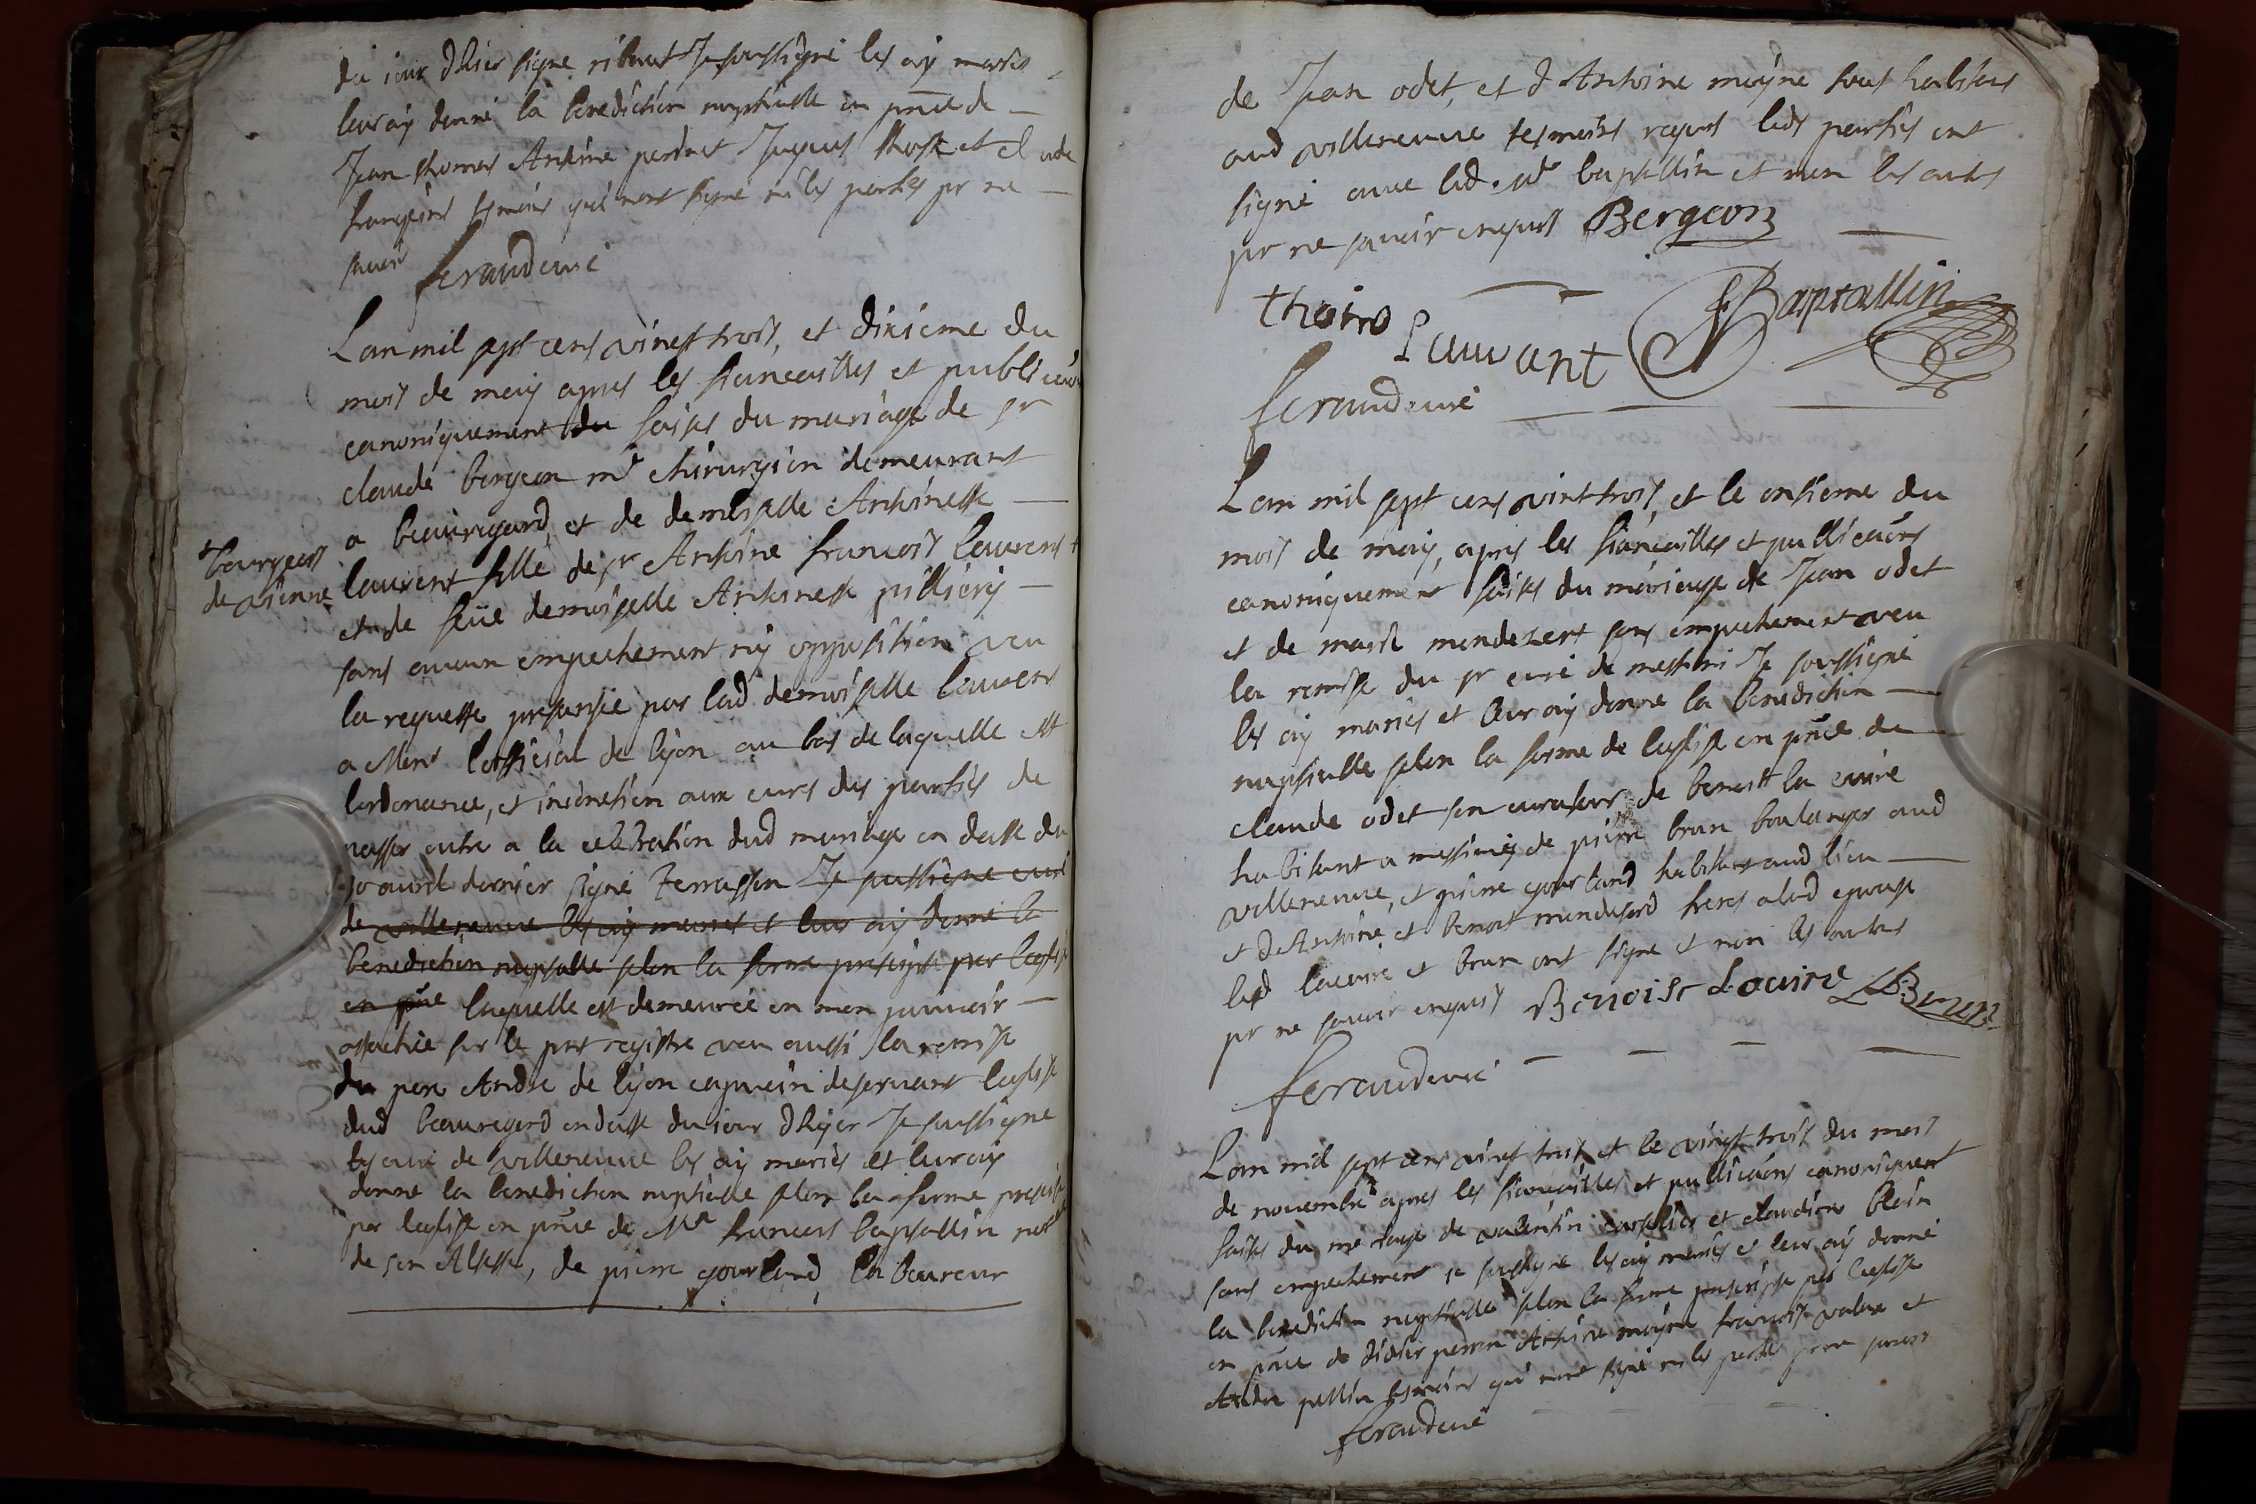 du iour dhier signe ribout Je soussigné les ay mariés
leur ay donné la benediction nuptialle en pnce de
Jean thomas Antoine perdnet Jaques et claude
tesmoins qui n'ont signé ni les parties pr ne
scavoir feraud curé
Lan mil sept cens vinest trois, et dixieme du
mois de may apres les fiancailles et publicaõns
canoniquement du faites du mariage de sr
claude bergeon mᵉ chirurgien demeurant
a beauregard, et de demoiselle Antoinette
laurent fille de sr Antoine francois laurent +
+ bourgeois
de vienne
et de feüe demoiselle Antoinette pilliery
sans aucun empechement ny opposition veu
la requeste presentée par lad demoiselle laurent
a Monsr lofficial de lyon au bas de laquelle est
lordonance, et iniõnction aux curés des parties de
passer outre a la celebration dud mariage en datte du
30 avril dernier signé Terrasson Je soussigne curé
de villeneuve les ay mariés et leur ay donné la
benediction nuptialle selon la forme prescripte par leglise
en pnce laquelle est demeurée en mon pouvoir
attachée sur le pnt registre veu aussi la remise
du pere André de lyon capucin deservant leglise
dud beauregard en datte du iour dhyer Je soussigne
curé de villeneuve les ay mariés et leur ay
donné la benediction nuptialle selon la forme prescripte
par leglise en pnce de Mᵉ francois baptallin not
de son Altesse, de pierre gourland laboureur
de Jean odet, et d Antoine moyne tous habitans
aud villeneuve tesmoins requis lesd parties ont
signé avec led. Mᵉ baptallin et non les autres
pr ne scavoir enquis Bergeon
Lauvant Baptallin
feraud curé
Lan mil sept cens vint trois, et le onsieme du
mois de may, apres les fiancailles et publicaõns
canoniquement faites du mariage de Jean odet
et de marie mondezert sans empechement veu
la remise du sr curé de messimi Je soussigné
les ay mariés et leur ay donné la benediction
nuptialle selon la forme de leglise en pnce de
claude odet son curateur, de benoist la cuire
habitant a messimy de pierre brun boulanger aud
villeneuve, et pierre gourland habitant aud lieu
et d Antoine, et benoit mondeserd freres a lad epouse
lesd lacuire et brun ont signé et non les autres
pr ne scavoir enquis Benoist Lacuire Brun
feraud curé
Lan mil sept cens vinst trois et le vingt trois du mois
de novembre apres les fiancailles et publicaõns canoniquemt
faites du mariage de valentin et claudine blein
sans empechement je soussigné les ay mariés et leur ay donné
la benediction nuptialle selon la forme prescripte par leglise
en pnce de didier perrin Antoine moyne francois et
André tesmoins qui n'ont signé ni les parties pour ne scavoir
feraud curé